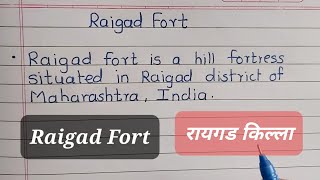 Raigad Fort
• Raigad fort is a hill fortress
situated in Raigad district of
Maharashtra, India.
Raigad Fort
रायगड किल्ला